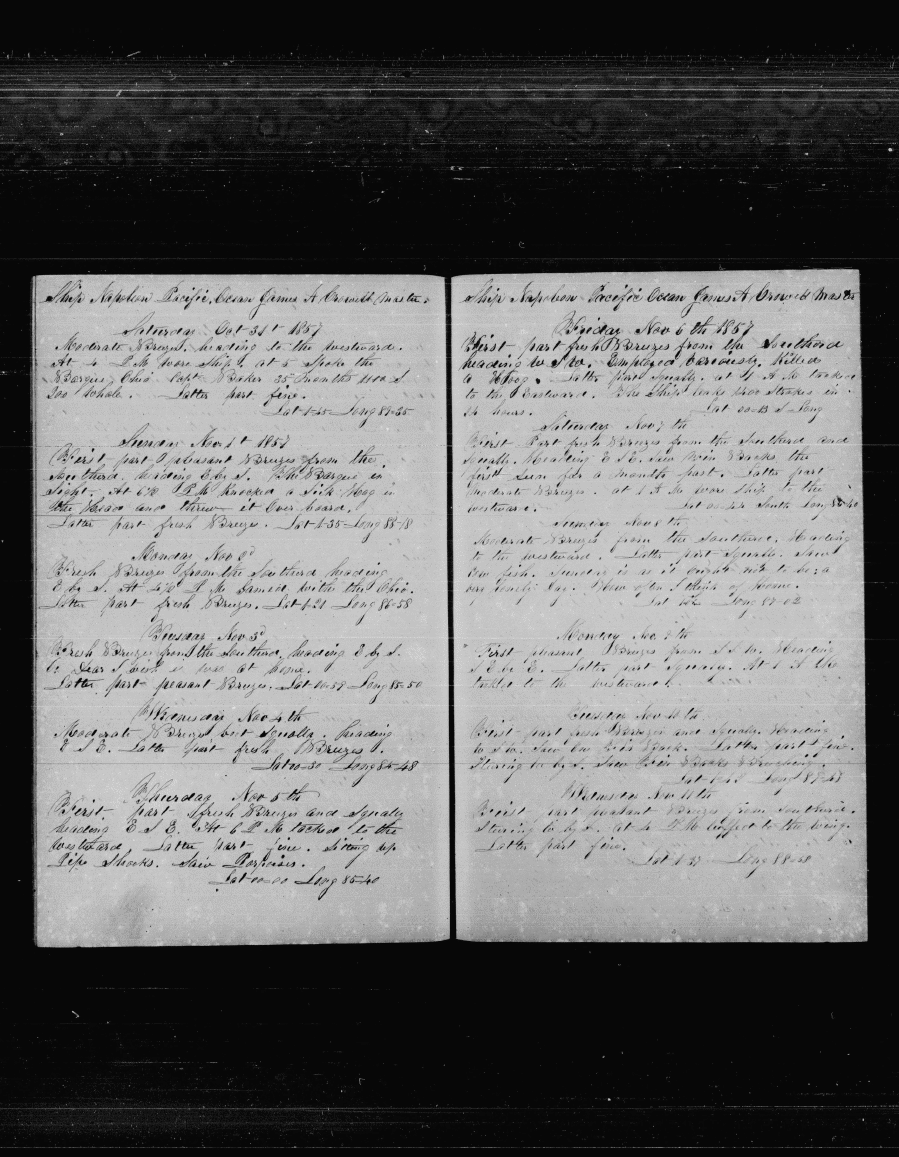 Ship Napoleon Pacific Ocean James A Crowell Master
Saturday Oct 31st 1857
Moderate Breezes, heading to the westward.
At 4 P.M wore Ship, at 5 Spoke the
Barque Ohio Capt Baker 35 months 1100 S.
200 whale. Latter part fine.
Lat 1-45 Long 87-25
Sunday Nov 1st 1857
First part pleasant Breezes from the
Southerd, heading E by S. The Barque in
Sight. At P.M knocked a Sick Hog in
the Head and threw it Over board.
Latter part fresh Breezes. Lat 1-35 Long 88-18
Monday Nov 2d
Fresh Breezes from the Southerd heading
E by S. At P.M Gamed with the Ohio.
Latter part fresh Breezes. Lat 1-21 Long 86-58
Tuesday Nov 3d
Fresh Breezes from the Southerd, heading E by S.
Dear I wish I was at home.
Latter part peasant Breezes. Lat 00-59 Long 85-50
Wednesday Nov 4th
Moderate Breezes but Squally. heading
E S E. Latter part fresh Breezes.
Lat 00-30 Long 85-48
Thursday Nov 5th
First part fresh Breezes and Squally
heading E S E. At 6 P.M tacked to the
westward Latter part fine. Setting up
Pipe Shooks. Saw Porpoises.
Lat 00-00 Long 85-40
Ship Napoleon Pacific Ocean James A Crowell Master
Friday Nov 6th 1857
First part fresh Breezes from the Southerd
heading W S W. Employed variously. Killed
a Hoog. Latter part Squally. at 4 A M tacked
to the Eastward. The Ship leaks Stroakes in
24 hours. Lat 00-13 S Long
Saturday Nov 7th
First Part fresh Breezes from the Southerd and
Squally. Heading E S E. Saw Fin Backs, the
first Seen for a month past. Latter part
moderate Breezes. at 1 A M wore Ship to the
westward. Lat 00-42 South Long 85-40
Sunday Nov 8th
Moderate Breezes from the Southerd, Heading
to the westward. Latter part Squally. Saw
Cow fish. Sunday is as it ought not to be; a
very lonely day. How often I think of home.
Lat Long 87-02
Monday Nov 9th
First pleasant Breezes from S S W. Heading
S E by E. Latter part Squally. At 1 A M
tacked to the westward.
Tuesday Nov 10th
First part fresh Breezes and Squally. Heading
W S W. Saw one Fin Back. Latter part fine.
Steering W by S. Saw Fin Backs & Breaching.
Lat Long
Wednesday Nov 11th
First part peasant Breezes from Southerd.
Steering W by S. At 4 P M luffed to the wind.
Latter part fine.
Lat Long